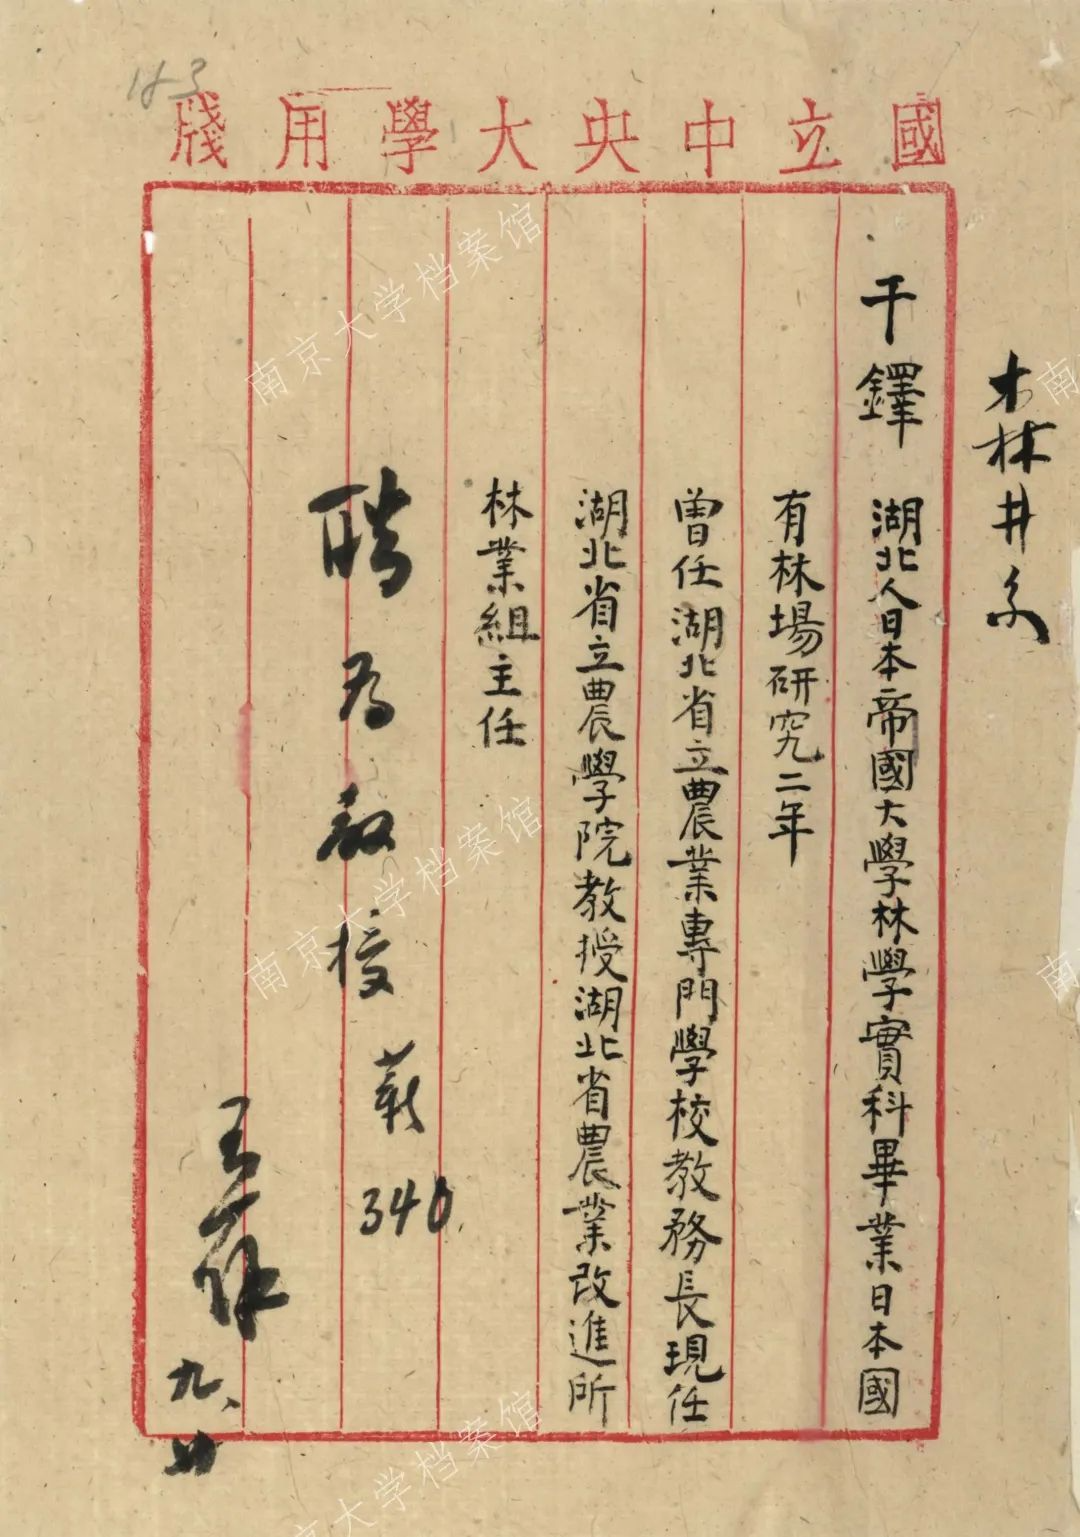 國立中央大學用牋
森林系
干鐸 湖北人日本帝國大學林學實科畢業日本國
有林場研究二年
曾任湖北省立農業專門學校教務長現任
湖北省立農學院教授湖北省農業改進所
林業組主任
聘為教授 薪 340
九、廿
南京大学档案馆
南京大学档案馆
南京大学档案馆